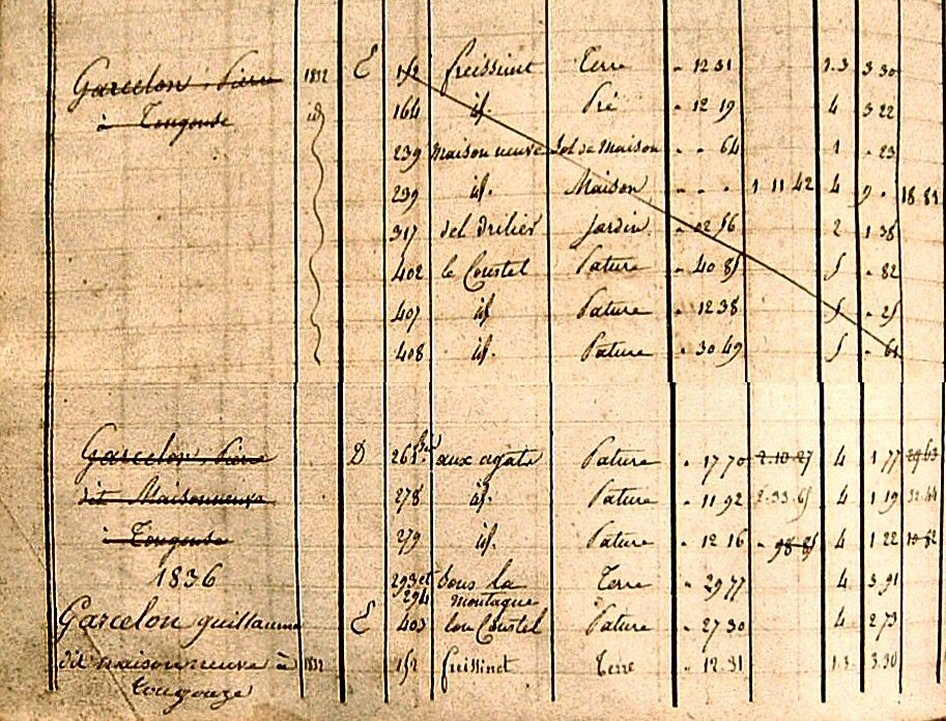 Garcelon, Pierre 1832 E 152 freissinet Terre " 12 31 1.3 3 30
à Tougouse id 164 id. Pré " 12 19 4 3 22
239 Maison neuve Sol de Maison " " 64 1 " 23
239 id. Maison " " " 1 11 42 4 9 "
317 del Drilier Jardin " 02 56 2 1 38
402 le Coustel Pature " 40 85 5 " 82
407 id Pature " 12 38 5 " 25
408 id. Pature " 30 49 5 " 61
Garcelon, Pierre D 265 bis aux agats Pature " 17 70 2.10.27 4 1 77 29 63
dit Maisonneuve 278 id. Pature " 11 92 2.33.65 4 1 19 32.64
à Tougouse 279 id. Pature " 12 16 " 98 85 4 1 22 10 82
1836 293 et 294 Sous la montagne Terre " 29 77 4 3 91
Garcelon guillaume E 403 lou Coustel Pature " 27 30 4 2 73
dit maison neuve à 1832 152 freissinet Terre " 12.31 1.3. 3.30
tougouze